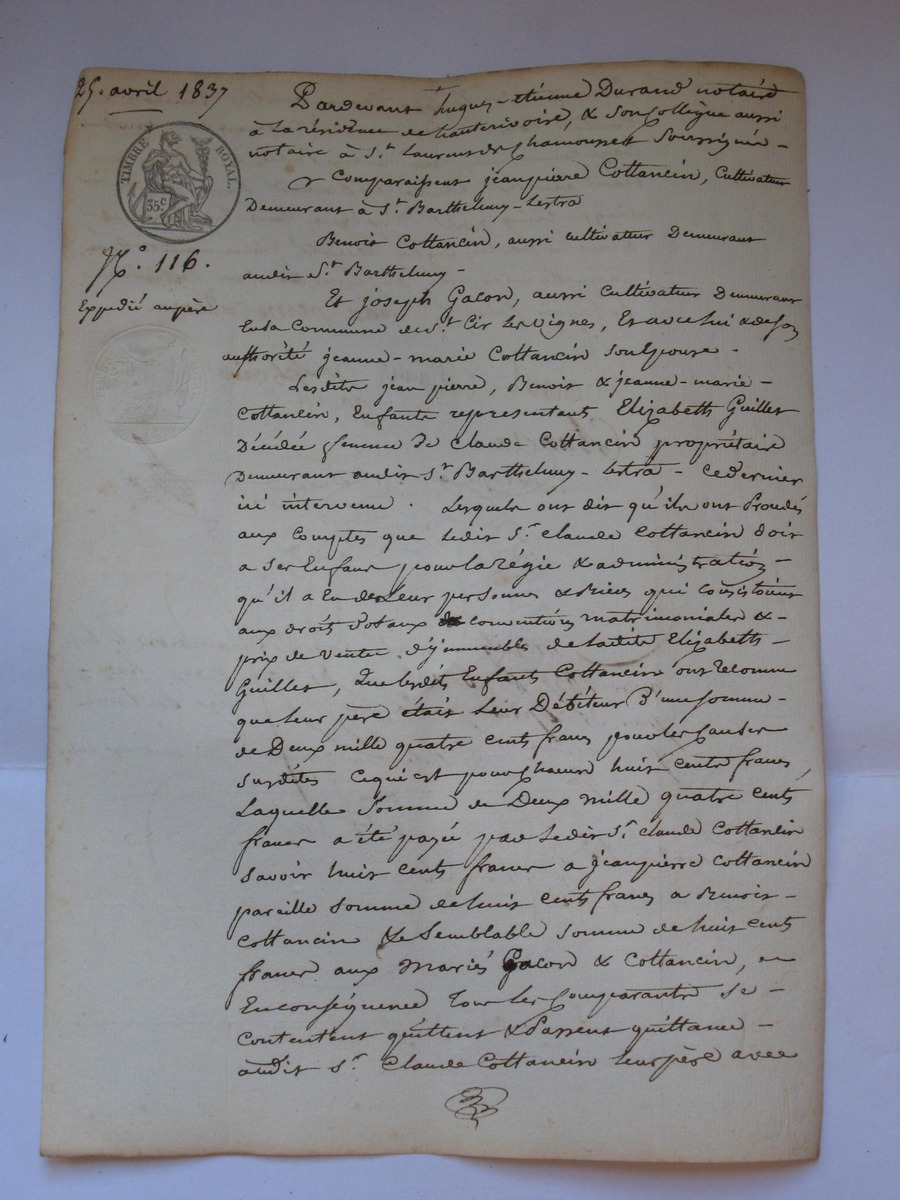 25. avril 1837
TIMBRE ROYAL.
35c
N.° 116.
Expedié au père
Pardevant hugues-étienne Durand notaire
à la résidence de hauterivoire, & son Collègue aussi
notaire à S.t Laurent de Chamousset Soussignés -
Comparaissent jean pierre Cottancin, Cultivateur
Demeurant à S.t Barthelemy-Lestra
Benoit Cottancin, aussi cultivateur Demeurant
audit S.t Barthelemy -
Et joseph Gacon, aussi Cultivateur Demeurant
En la Commune de S.t Cir les vignes, Et avec lui & de son
authorité jeanne-marie Cottancin son Epouse -
Lesdits jean pierre, Benoit & jeanne-marie -
Cottancin, Enfants representant Elizabeth Guillet
Décédée femme de Claude Cottancin propriétaire
Demeurant audit S.t Barthelemy-Lestra - ce dernier
ici intervenu. Lesquels ont dit qu'ils ont Procédés
aux Comptes que ledit S.r Claude Cottancin doit
a ses Enfans pour la régie & administration -
qu'il a Eu de Leur personnes & Biens qui consistoient
aux droits Dotaux conventions matrimoniales & -
prix de Ventes d'jmmeubles de ladite Elizabeth -
Guillet, Que lesdits Enfants Cottancin ont reconnu
que leur père était Leur Débiteur D'une somme -
de Deux mille quatre cents francs pour les Causes
susdites ce qui est pour Chacun huit cents francs,
Laquelle Somme de Deux mille quatre cents
francs a été payée par ledit S.r Claude Cottancin
Savoir huit cents francs a jean pierre Cottancin
pareille somme de huit cents francs a Benoit -
Cottancin & Semblable somme de huit cents
francs aux mariés Gacon & Cottancin,
En conséquence tous les Comparants se -
Contentent quittent & Passent quittance -
audit S.r Claude Cottancin leur père avec